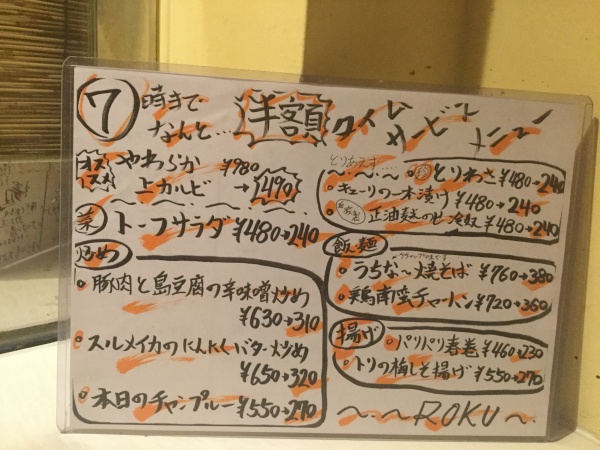 7時まで
なんと… 半額 タイムサービスメニュー
オススメ やわらか
上カルビ ¥980→490
菜 トーフサラダ ¥480→240
炒め
豚肉と島豆腐の辛味噌炒め
¥630→310
スルメイカのにんにくバター炒め
¥650→320
本日のチャンプルー ¥550→270
とりあえず
珍 とりわさ ¥480→240
キューリの一本漬け ¥480→240
自家製 正油麹のせ冷奴 ¥480→240
飯・麺
うちな〜焼そば ¥760→380
鶏南蛮チャーハン ¥720→360
揚げ
パリパリ春巻 ¥460→230
トリの梅しそ揚げ ¥550→270
〜・〜ROKU〜・